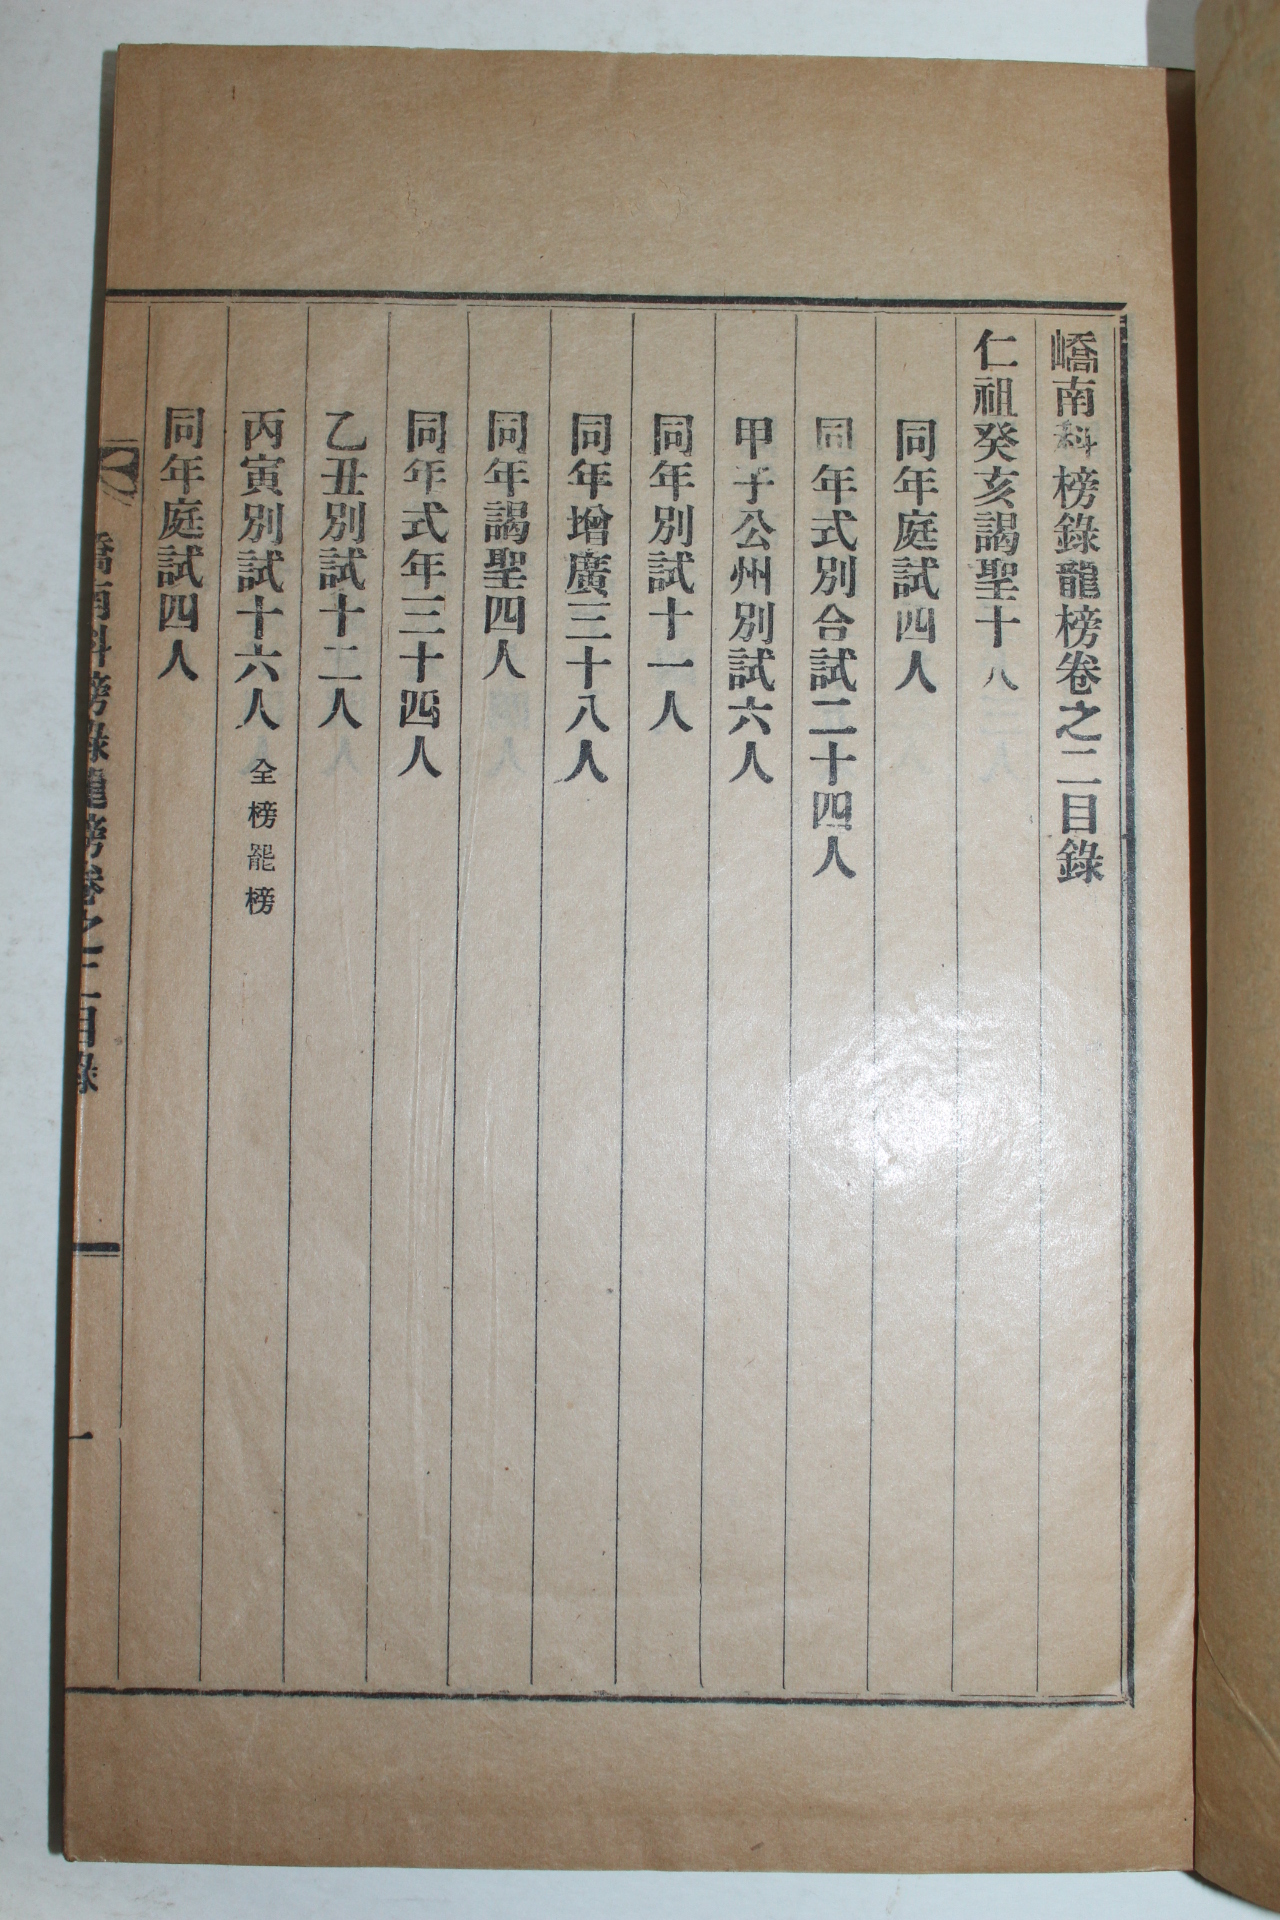 嶠南科榜錄龍榜卷之二目錄
仁祖癸亥謁聖十八
同年庭試四人
同年式別合試二十四人
甲子公州別試六人
同年別試十一人
同年增廣三十八人
同年謁聖四人
同年式年三十四人
乙丑別試十二人
丙寅別試十六人 全榜罷榜
同年庭試四人
嶠南科榜錄龍榜卷之二目錄
一